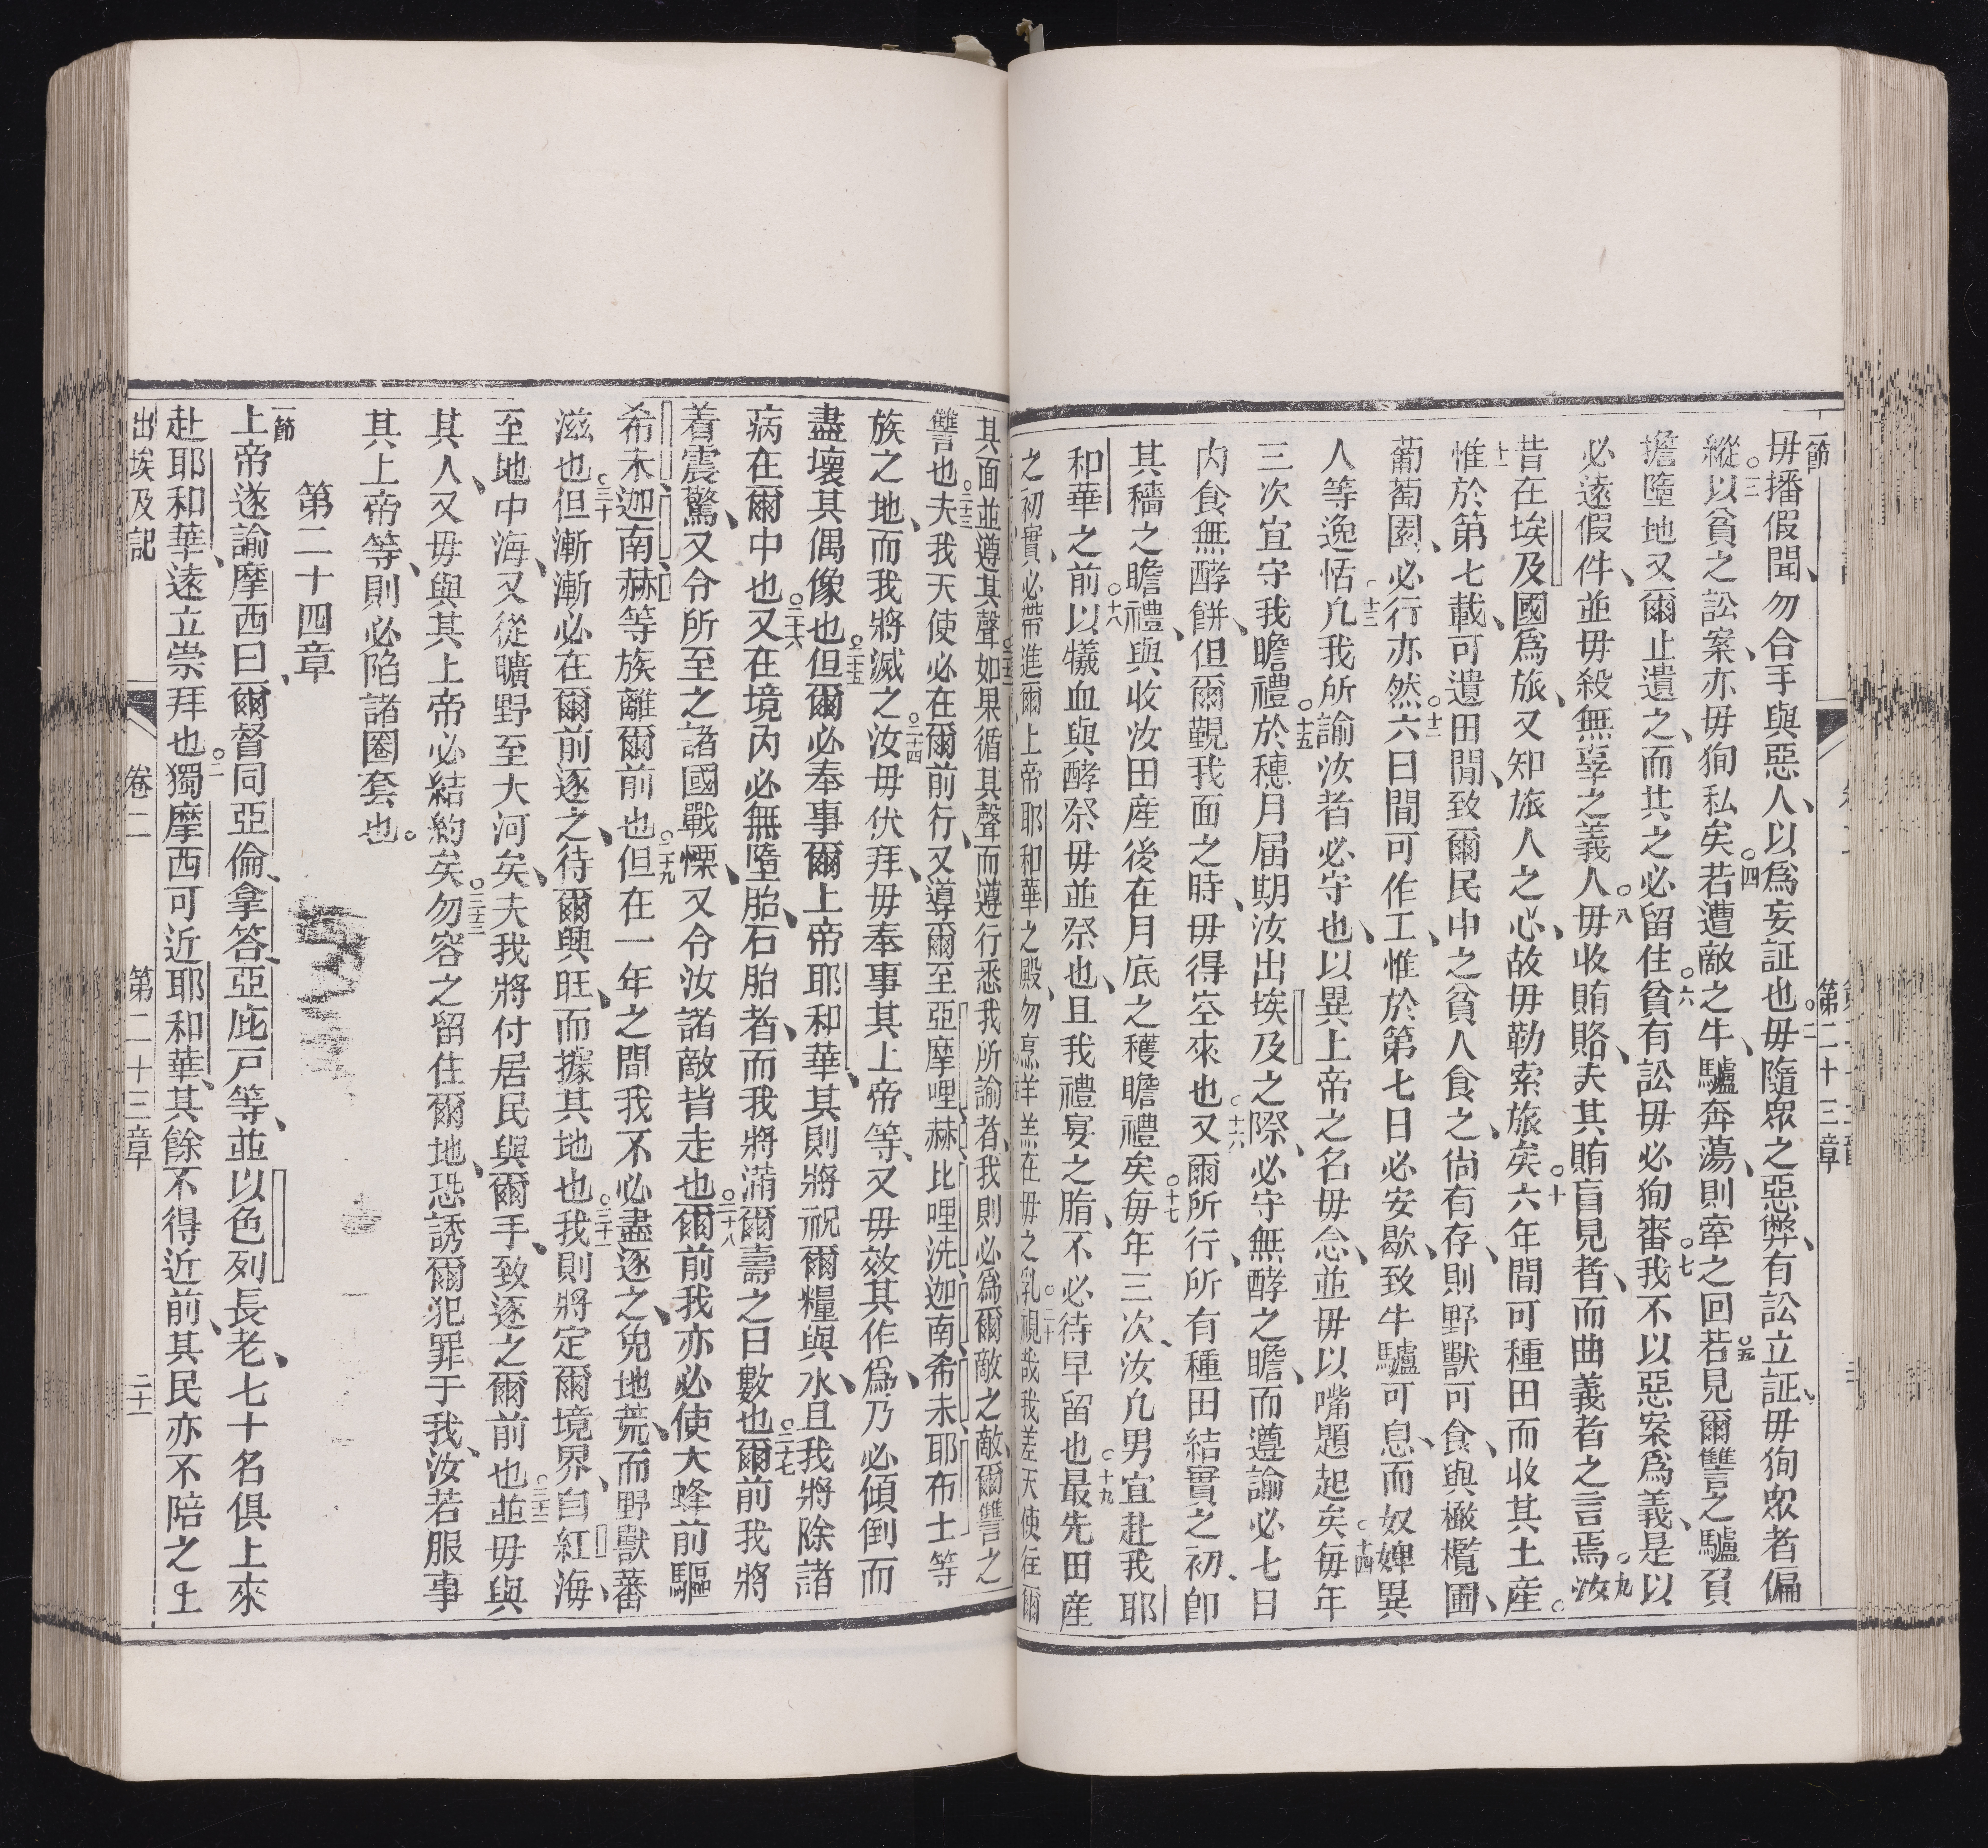 第二十三章
一節
毋播假聞、勿合手與惡人、以爲妄証也○二毋隨眾之惡弊、有訟立証、毋狥眾者偏
縱○三以貧之訟案、亦毋狥私矣○四若遭敵之牛、驢奔蕩、則牽之回○五若見爾讐之驢負
擔墮地、又爾止遺之、而共之必留住○六貧有訟毋必狥審○七我不以惡案爲義、是以
必遠假件、並毋殺無辜之義人○八毋收賄賂、夫其賄盲見者、而曲義者之言焉○九汝
昔在埃及國爲旅、又知旅人之心、故毋勒索旅矣○十六年間可種田而收其土産。
十一惟於第七載、可遺田閒、致爾民中之貧人食之、尙有存、則野獸可食、與橄欖園、
葡萄園、必行亦然○十二六日間可作工、惟於第七日必安歇、致牛驢可息、而奴婢異
人等逸恬○十三凡我所諭汝者必守也、以異上帝之名毋念、並毋以嘴題起矣○十四每年
三次宜守我瞻禮○十五於穗月屆期汝出埃及之際、必守無酵之瞻、而遵諭必七日
內食無酵餅、但爾覲我面之時、毋得空來也○十六又爾所行、所有種田結實之初、卽
其穡之瞻禮、與收汝田產後在月底之穫瞻禮矣○十七每年三次、汝凡男宜赴我耶
和華之前○十八以犧血與酵祭毋並祭也、且我禮宴之脂、不必待早留也○十九最先田産
之初實、必帶進爾上帝耶和華之殿、勿烹羊羔在毋之乳○二十視哉我差天使往爾
其面並遵其聲○二十二如果循其聲而遵行悉我所諭者、我則必爲爾敵之敵、爾讐之
讐也○二十三夫我天使必在爾前行、又導爾至亞摩哩赫比哩洗迦南希未耶布士等
族之地、而我將滅之○二十四汝毋伏拜、毋奉事其上帝等、又毋效其作爲、乃必傾倒而
盡壞其偶像也○二十五但爾必奉事爾上帝耶和華、其則將祝爾糧與水、且我將除諸
病在爾中也○二十六又在境內必無墮胎、石胎者、而我將滿爾壽之日數也○二十七爾前我將
着震驚、又令所至之諸國戰慄、又令汝諸敵皆走也○二十八爾前我亦必使大蜂前驅
希未迦南赫等族離爾前也○二十九但在一年之間我不必盡逐之、免地荒、而野獸蕃
滋也○三十但漸漸必在爾前逐之、待爾興旺、而據其地也○三十一我則將定爾境界、自紅海、
至地中海、又從曠野至大河矣、夫我將付居民與爾手、致逐之爾前也○三十二並毋與
其人、又毋與其上帝必結約矣○三十三勿容之留住爾地、恐誘爾犯罪于我、汝若服事
其上帝等、則必陷諸圈套也。
第二十四章
一節
上帝遂諭摩西曰、爾督同亞倫、拿答、亞庇戸等、並以色列長老、七十名俱上來
赴耶和華、遠立崇拜也○二獨摩西可近耶和華、其餘不得近前、其民亦不陪之上
出埃及記 卷二 第二十三章 二十一